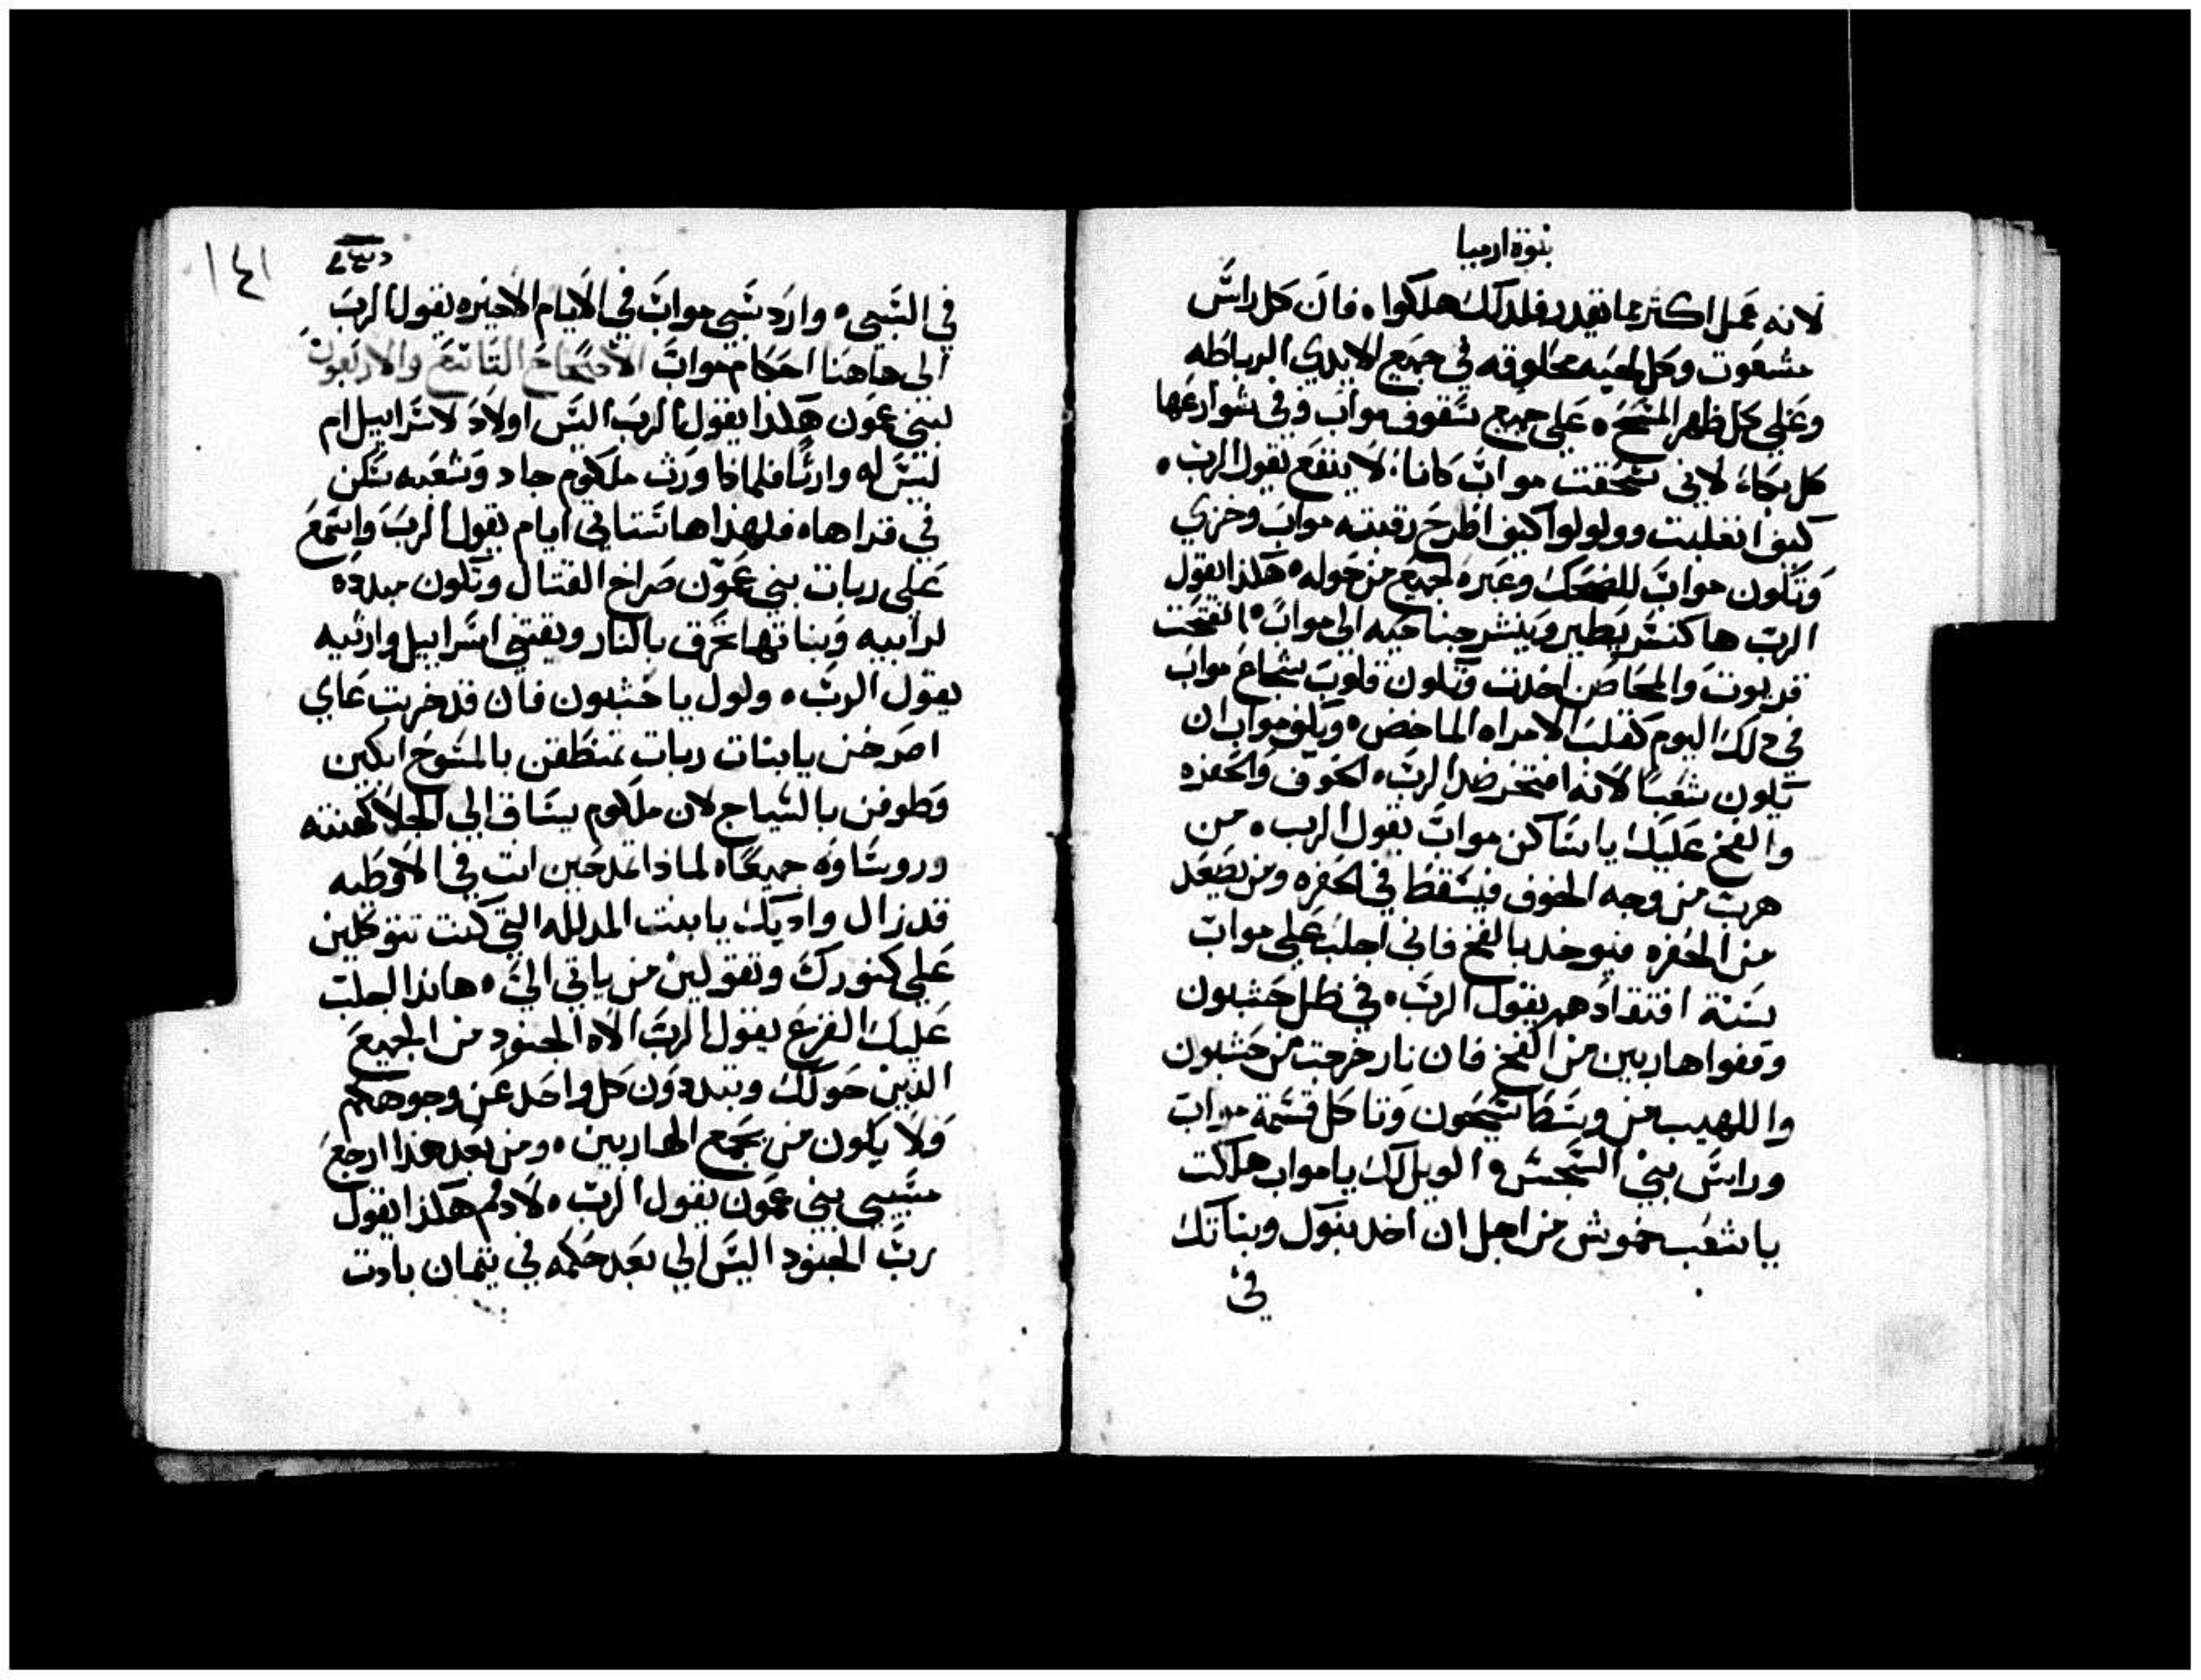 بنوة ارميا
لانه عمل اكثر مما تقدر فلدلك هلكوا، فان كل راس
مشعوت وكل لحيه محلوقه في جميع الايدي الرباطه
وعلي كل ظهر المسح، علي جميع سقوف مواب وفي شوارعها
كل بكاء، لاني سحقت مواب كاناء لا ينفع يقول الرب،
كيف انغلبت وولولوا كيف اطرح رقبته مواب وخزي
وتكون مواب للضحك وعبره لجميع من حوله، هكذا يقول
الرب ها كنسر يطير وينشر جناحيه الي مواب، انفتحت
قريوت والمحاصن اخدت وتكون قلوب شجاع مواب
في دلك اليوم كقلب الامراه الماخض، ويكف مواب ان
يكون شعبًا لانه افتخر ضد الرب، الخوف والحفره
والفخ عليك يا ساكن مواب يقول الرب، من
هرب من وجه الخوف فيسقط في الحفره ومن يصعد
من الحفره فيوخد بالفخ فاني اجلب علي مواب
سنة افتقادهم يقول الرب، في ظل حشبون
وقفوا هاربين من الفخ فان نار خرجت من حشبون
واللهيب من وسط سيحون وتاكل قسمة مواب
وراس بني السجس، الويل لك يا مواب هلكت
يا شعب خموش من اجل ان اخد بنوك وبناتك
في
١٤١
في السبي، وارد سبي مواب في الايام الاخيره يقول الرب
الي هاهنا احكام مواب الاصحاح التاسع والاربعون
لبني عمون هكذا يقول الرب اليس اولاد لاسراييل ام
ليس له وارثًا فلماذا ورث ملكوم جاد وشعبه سكن
في قراها، فلهذا ها ستاتي ايام يقول الرب واسمع
علي ربات بني عمون صراخ القتال وتكون مبدده
لرابيه وبناتها تحرق بالنار ويقتني اسراييل وارثيه
يقول الرب، ولول يا حشبون فان قد خربت عاي
اصرخن يا بنات ربات تمنطقن بالمسوح ابكين
وطوفن بالسياج لان ملكوم يساق الي الجلا كهنته
وروساوه جميعًا، لماذا تمدحين انت في الاوطيه
قد زال واديك يا بنت المدلله التي كنت تتوكلين
علي كنوزك وتقولين من ياتي الي، هانذا اجلب
عليك الفزع يقول الرب الاه الجنود من الجميع
الذين حولك وتبددون كل واحد عن وجوهكم
ولا يكون من يجمع الهاربين، ومن بعد هذا ارجع
مسبيي بني عمون يقول الرب، لادوم هكذا يقول
رب الجنود اليس الي بعد حكمه في تيمان بادت